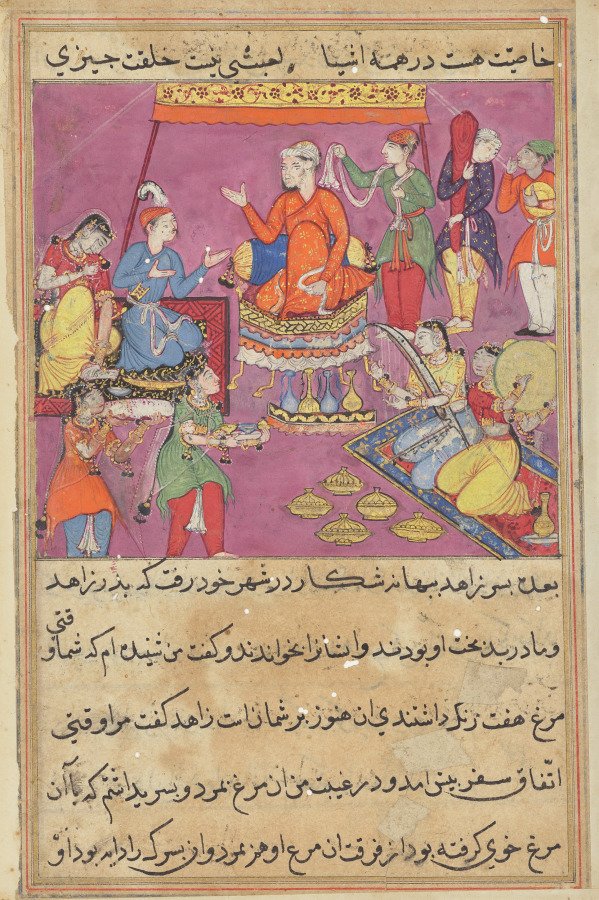 خاصیّت هست در همه اشیا لعبثی نیست خلقت چیزی
بعده پسر زاهد ببهانه شکار در شهر خود رفت که پدر زاهد
و مادر بدبخت او بودند و ایشانرا بخواندند و کفت من شنیده ام که شما وقتی
مرغ هفت رنک داشتندی ان هنوز بر شمان است زاهد کفت مرا وقتی
اتّفاق سفر پیش امد و در غیبت من ان مرغ بمرد و پسر یداشتم که با آن
مرغ خوی کرفته بود از فرقت ان مرغ او هم بمرد و ان پسرک را دایه بود او